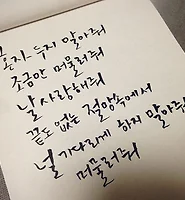 혼자 두지 말아줘
조금만 머물러줘
날 사랑해줘
끝도 없는 절망속에서
널 기다리게 하지 말아줘
머물러줘